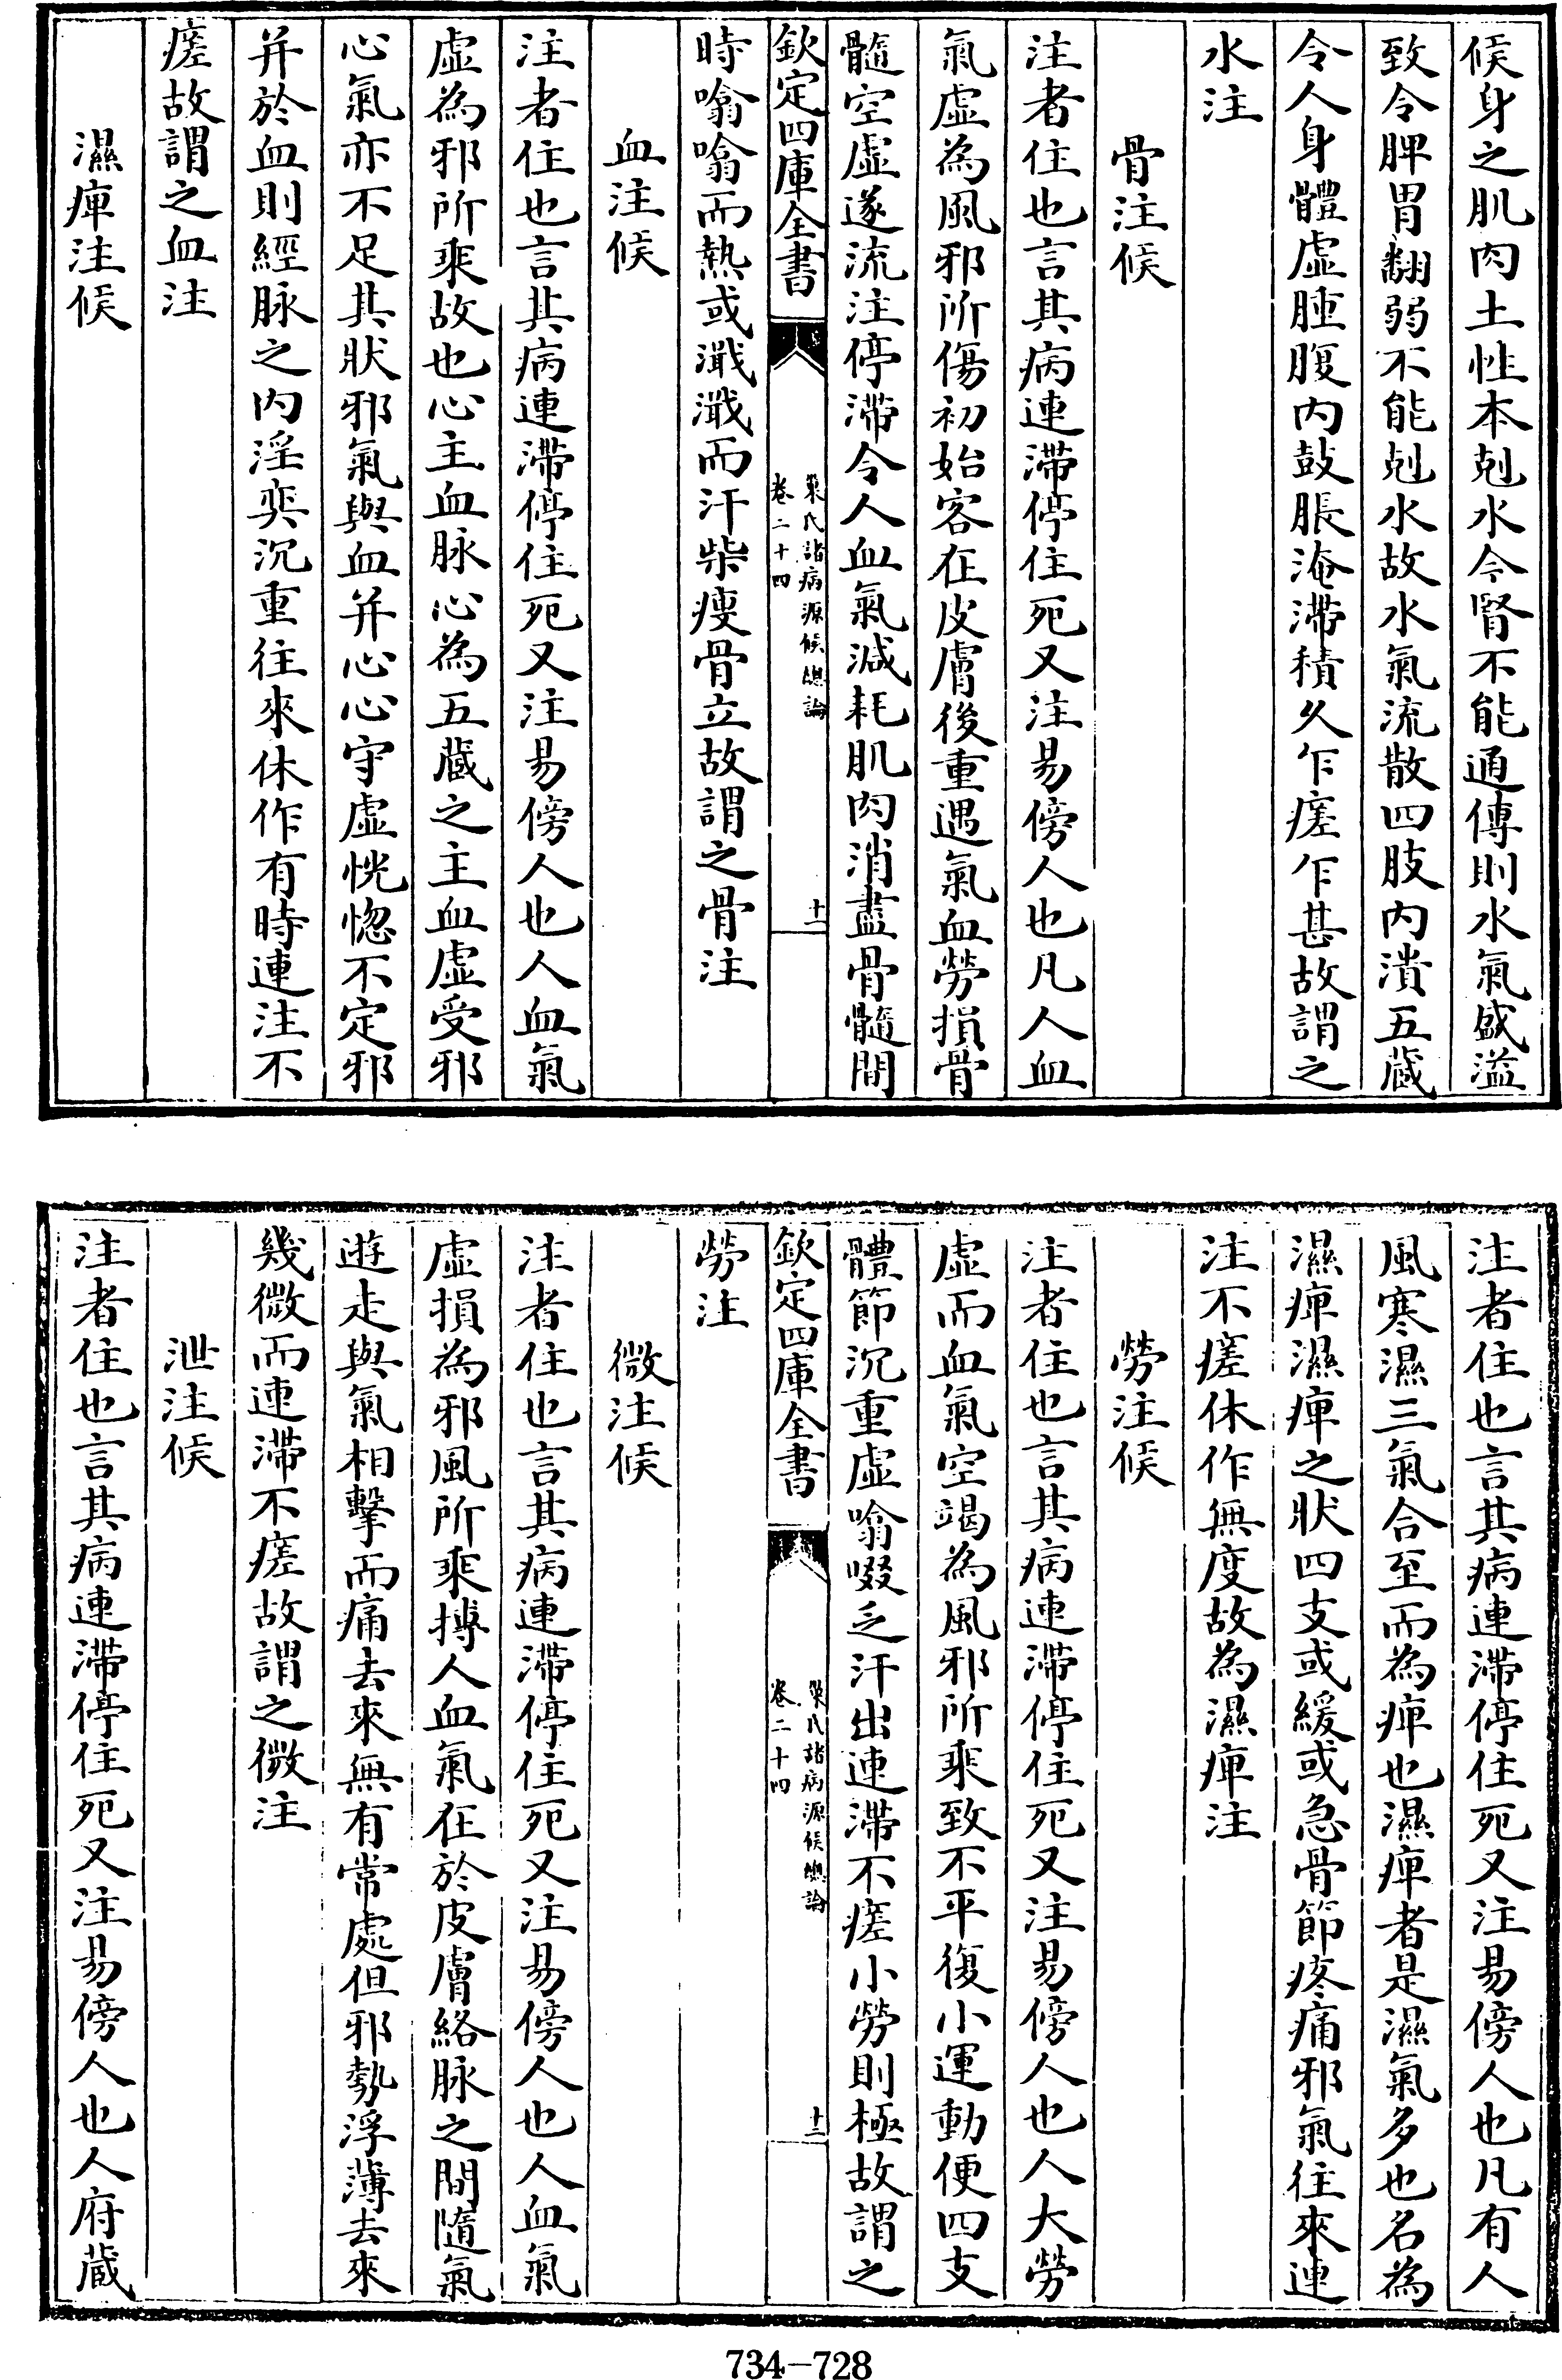 候身之肌肉土性本剋水今腎不能通傳則水氣盛溢
致令脾胃翻弱不能剋水故水氣流散四肢内潰五藏
令人身體虛腫腹内鼓脹淹滯積久乍瘥乍甚故謂之
水注
骨注候
注者住也言其病連滯停住死又注易傍人也凡人血
氣虛為風邪所傷初始客在皮膚後重遇氣血勞損骨
髓空虛遂流注停滯令人血氣減耗肌肉消盡骨髓間
欽定四庫全書
巢氏諸病源候總論
卷二十四
十一
時噏噏而熱或濈濈而汗柴瘦骨立故謂之骨注
血注候
注者住也言其病連滯停住死又注易傍人也人血氣
虛為邪所乘故也心主血脉心為五藏之主血虛受邪
心氣亦不足其狀邪氣與血并心心守虛恍惚不定邪
并於血則經脉之内淫奕沉重往來休作有時連注不
瘥故謂之血注
濕痺注候
注者住也言其病連滯停住死又注易傍人也凡有人
風寒濕三氣合至而為痺也濕痺者是濕氣多也名為
濕痺濕痺之狀四支或緩或急骨節疼痛邪氣往來連
注不瘥休作無度故為濕痺注
勞注候
注者住也言其病連滯停住死又注易傍人也人大勞
虛而血氣空竭為風邪所乘致不平復小運動便四支
體節沉重虛噏啜乏汗出連滯不瘥小勞則極故謂之
欽定四庫全書
巢氏諸病源候總論
卷二十四
十二
勞注
微注候
注者住也言其病連滯停住死又注易傍人也人血氣
虛損為邪風所乘搏人血氣在於皮膚絡脉之間隨氣
遊走與氣相擊而痛去來無有常處但邪勢浮薄去來
幾微而連滯不瘥故謂之微注
泄注候
注者住也言其病連滯停住死又注易傍人也人府藏
734-728